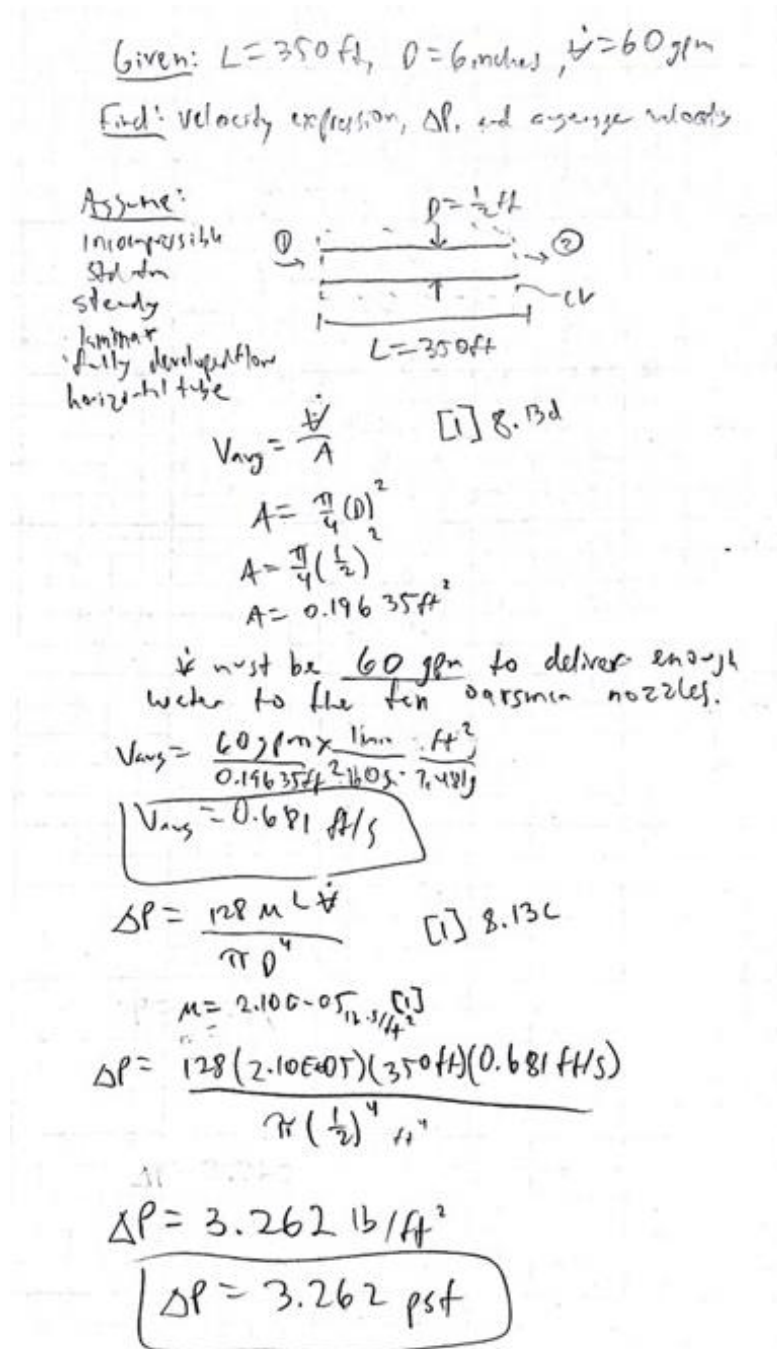 Given: L=350 ft, D=6 inches, V̇=60 gpm
Find: velocity expression, ΔP, and average velocity
Assume:
incompressible
steady
laminar
fully developed flow
horizontal tube
D=½ ft
① ②
CV
L=350ft
Vavg = V̇/A [1] 8.13d
A= π/4 (D)²
A= π/4 (½)²
A= 0.19635 ft²
V̇ must be 60 gpm to deliver enough
water to the ten oarsmen nozzles.
Vavg= 60gpm/0.19635ft² × 1min/60s · ft³/7.481g
Vavg = 0.681 ft/s
ΔP = 128 μ L V̇ / π D⁴ [1] 8.13c
μ= 2.10E-05 lb·s/ft² [1]
ΔP= 128(2.10E-05)(350ft)(0.681 ft/s) / π(½)⁴ ft⁴
ΔP= 3.262 lb/ft²
ΔP= 3.262 psf